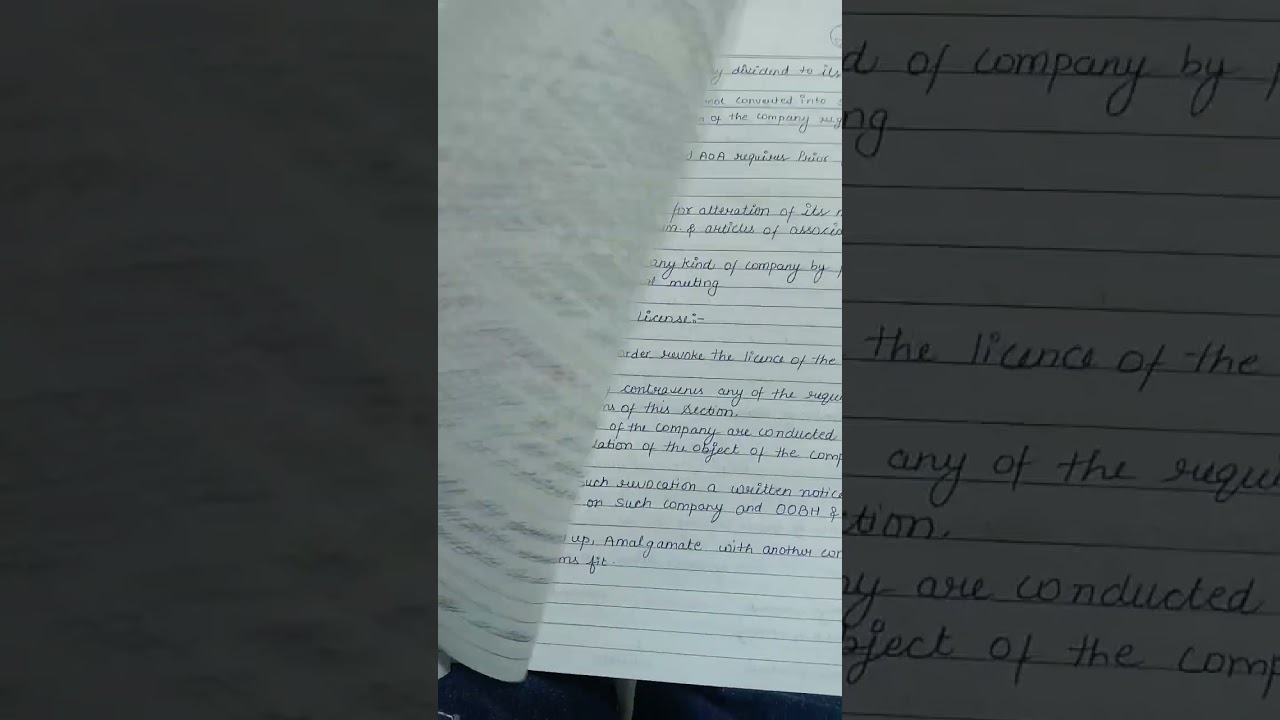 dividend to its
not converted into
of the company
AOA requires Prior
for alteration of its
& articles of associa
any kind of company by
muting
License:-
order revoke the licence of the
contravenes any of the requi
ns of this section.
of the company are conducted
lation of the object of the comp
such revocation a written notice
on such company and OOBH &
up, Amalgamate with another con
ms fit.
d of company by
ng
the licence of the
any of the requi
ction.
ny are conducted
bject of the comp